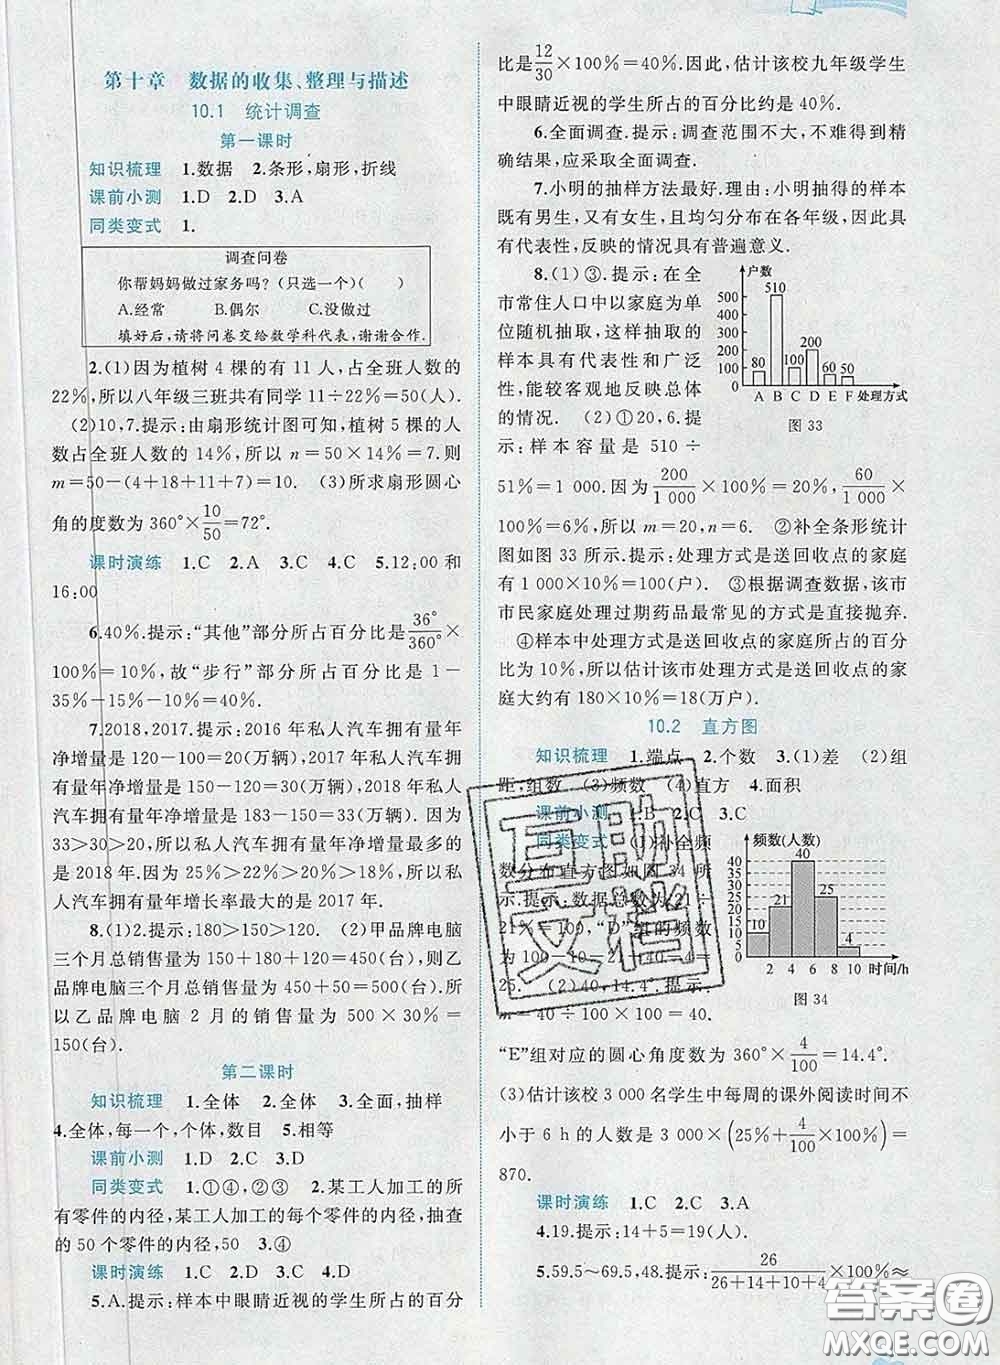 第十章 数据的收集、整理与描述
10.1 统计调查
第一课时
知识梳理 1.数据 2.条形,扇形,折线
课前小测 1.D 2.D 3.A
同类变式 1.
调查问卷
你帮妈妈做过家务吗?(只选一个)( )
A.经常 B.偶尔 C.没做过
填好后,请将问卷交给数学科代表,谢谢合作.
2.(1)因为植树 4 棵的有 11 人,占全班人数的
22%,所以八年级三班共有同学 11÷22%=50(人).
(2)10,7.提示:由扇形统计图可知,植树 5 棵的
人数占全班人数的 14%,所以 n=50×14%=7.则
m=50-(4+18+11+7)=10. (3)所求扇形圆心
角的度数为 360°×10/50=72°.
课时演练 1.C 2.A 3.C 4.C 5.12:00 和
16:00
6.40%.提示:“其他”部分所占百分比是36°/360°×
100%=10%,故“步行”部分所占百分比是 1-
35%-15%-10%=40%.
7.2018,2017.提示:2016 年私人汽车拥有量年
净增量是 120-100=20(万辆),2017 年私人汽车拥
有量年净增量是 150-120=30(万辆),2018 年私人
汽车拥有量年净增量是 183-150=33(万辆).因为
33>30>20,所以私人汽车拥有量年净增量最多的
是 2018 年.因为 25%>22%>20%>18%,所以私
人汽车拥有量年增长率最大的是 2017 年.
8.(1)2.提示:180>150>120. (2)甲品牌电脑
三个月总销售量为 150+180+120=450(台),则乙
品牌电脑三个月总销售量为 450+50=500(台).所
以乙品牌电脑 2 月的销售量为 500×30%=
150(台).
第二课时
知识梳理 1.全体 2.全体 3.全面,抽样
4.全体,每一个,个体,数目 5.相等
课前小测 1.D 2.C 3.D
同类变式 1.①④,②③ 2.某工人加工的所
有零件的内径,某工人加工的每个零件的内径,抽查
的 50 个零件的内径,50 3.④
课时演练 1.C 2.C 3.C 4.D
5.A.提示:样本中眼睛近视的学生所占的百分
比是12/30×100%=40%.因此,估计该校九年级学生
中眼睛近视的学生所占的百分比约是 40%.
6.全面调查.提示:调查范围不大,不难得到精
确结果,应采取全面调查.
7.小明的抽样方法最好.理由:小明抽得的样本
既有男生,又有女生,且均匀分布在各年级,因此具
有代表性,反映的情况具有普遍意义.
8.(1)③.提示:在全
市常住人口中以家庭为单
位随机抽取,这样抽取的
样本具有代表性和广泛
性,能较客观地反映总体
的情况. (2)①20,6.提
示:样本容量是 510÷
户数
500
400
300
200
100
0
80
510
100
200
60
50
A B C D E F 处理方式
图 33
51%=1 000.因为200/1 000×100%=20%,60/1 000×
100%=6%,所以 m=20,n=6. ②补全条形统计
图如图 33 所示.提示:处理方式是送回收点的家庭
有 1 000×10%=100(户). ③根据调查数据,该市
市民家庭处理过期药品最常见的方式是直接抛弃.
④样本中处理方式是送回收点的家庭所占的百分
比为 10%,所以估计该市处理方式是送回收点的家
庭大约有 180×10%=18(万户).
10.2 直方图
知识梳理 1.端点 2.个数 3.(1)差 (2)组
距,组数 (3)频数 (4)直方 4.面积
课前小测 1.B 2.C 3.C
同类变式 (1)补全频
数分布直方图如图 34 所
示.提示:数据总数为 21÷
21%=100,“D”组的频数
为 100-10-21-40-4=
25. (2)40,14.4°.提示:
m=40÷100×100=40.
频数(人数)
40
35
30
25
20
15
10
5
0
10
21
40
25
4
2 4 6 8 10 时间/h
图 34
“E”组对应的圆心角度数为 360°×4/100=14.4°.
(3)估计该校 3 000 名学生中每周的课外阅读时间不
小于 6 h 的人数是 3 000×(25%+4/100×100%)=
870.
课时演练 1.C 2.C 3.A
4.19.提示:14+5=19(人).
5.59.5~69.5,48.提示:26/26+14+10+4×100%≈
互助文档
答案圈
MXQE.COM